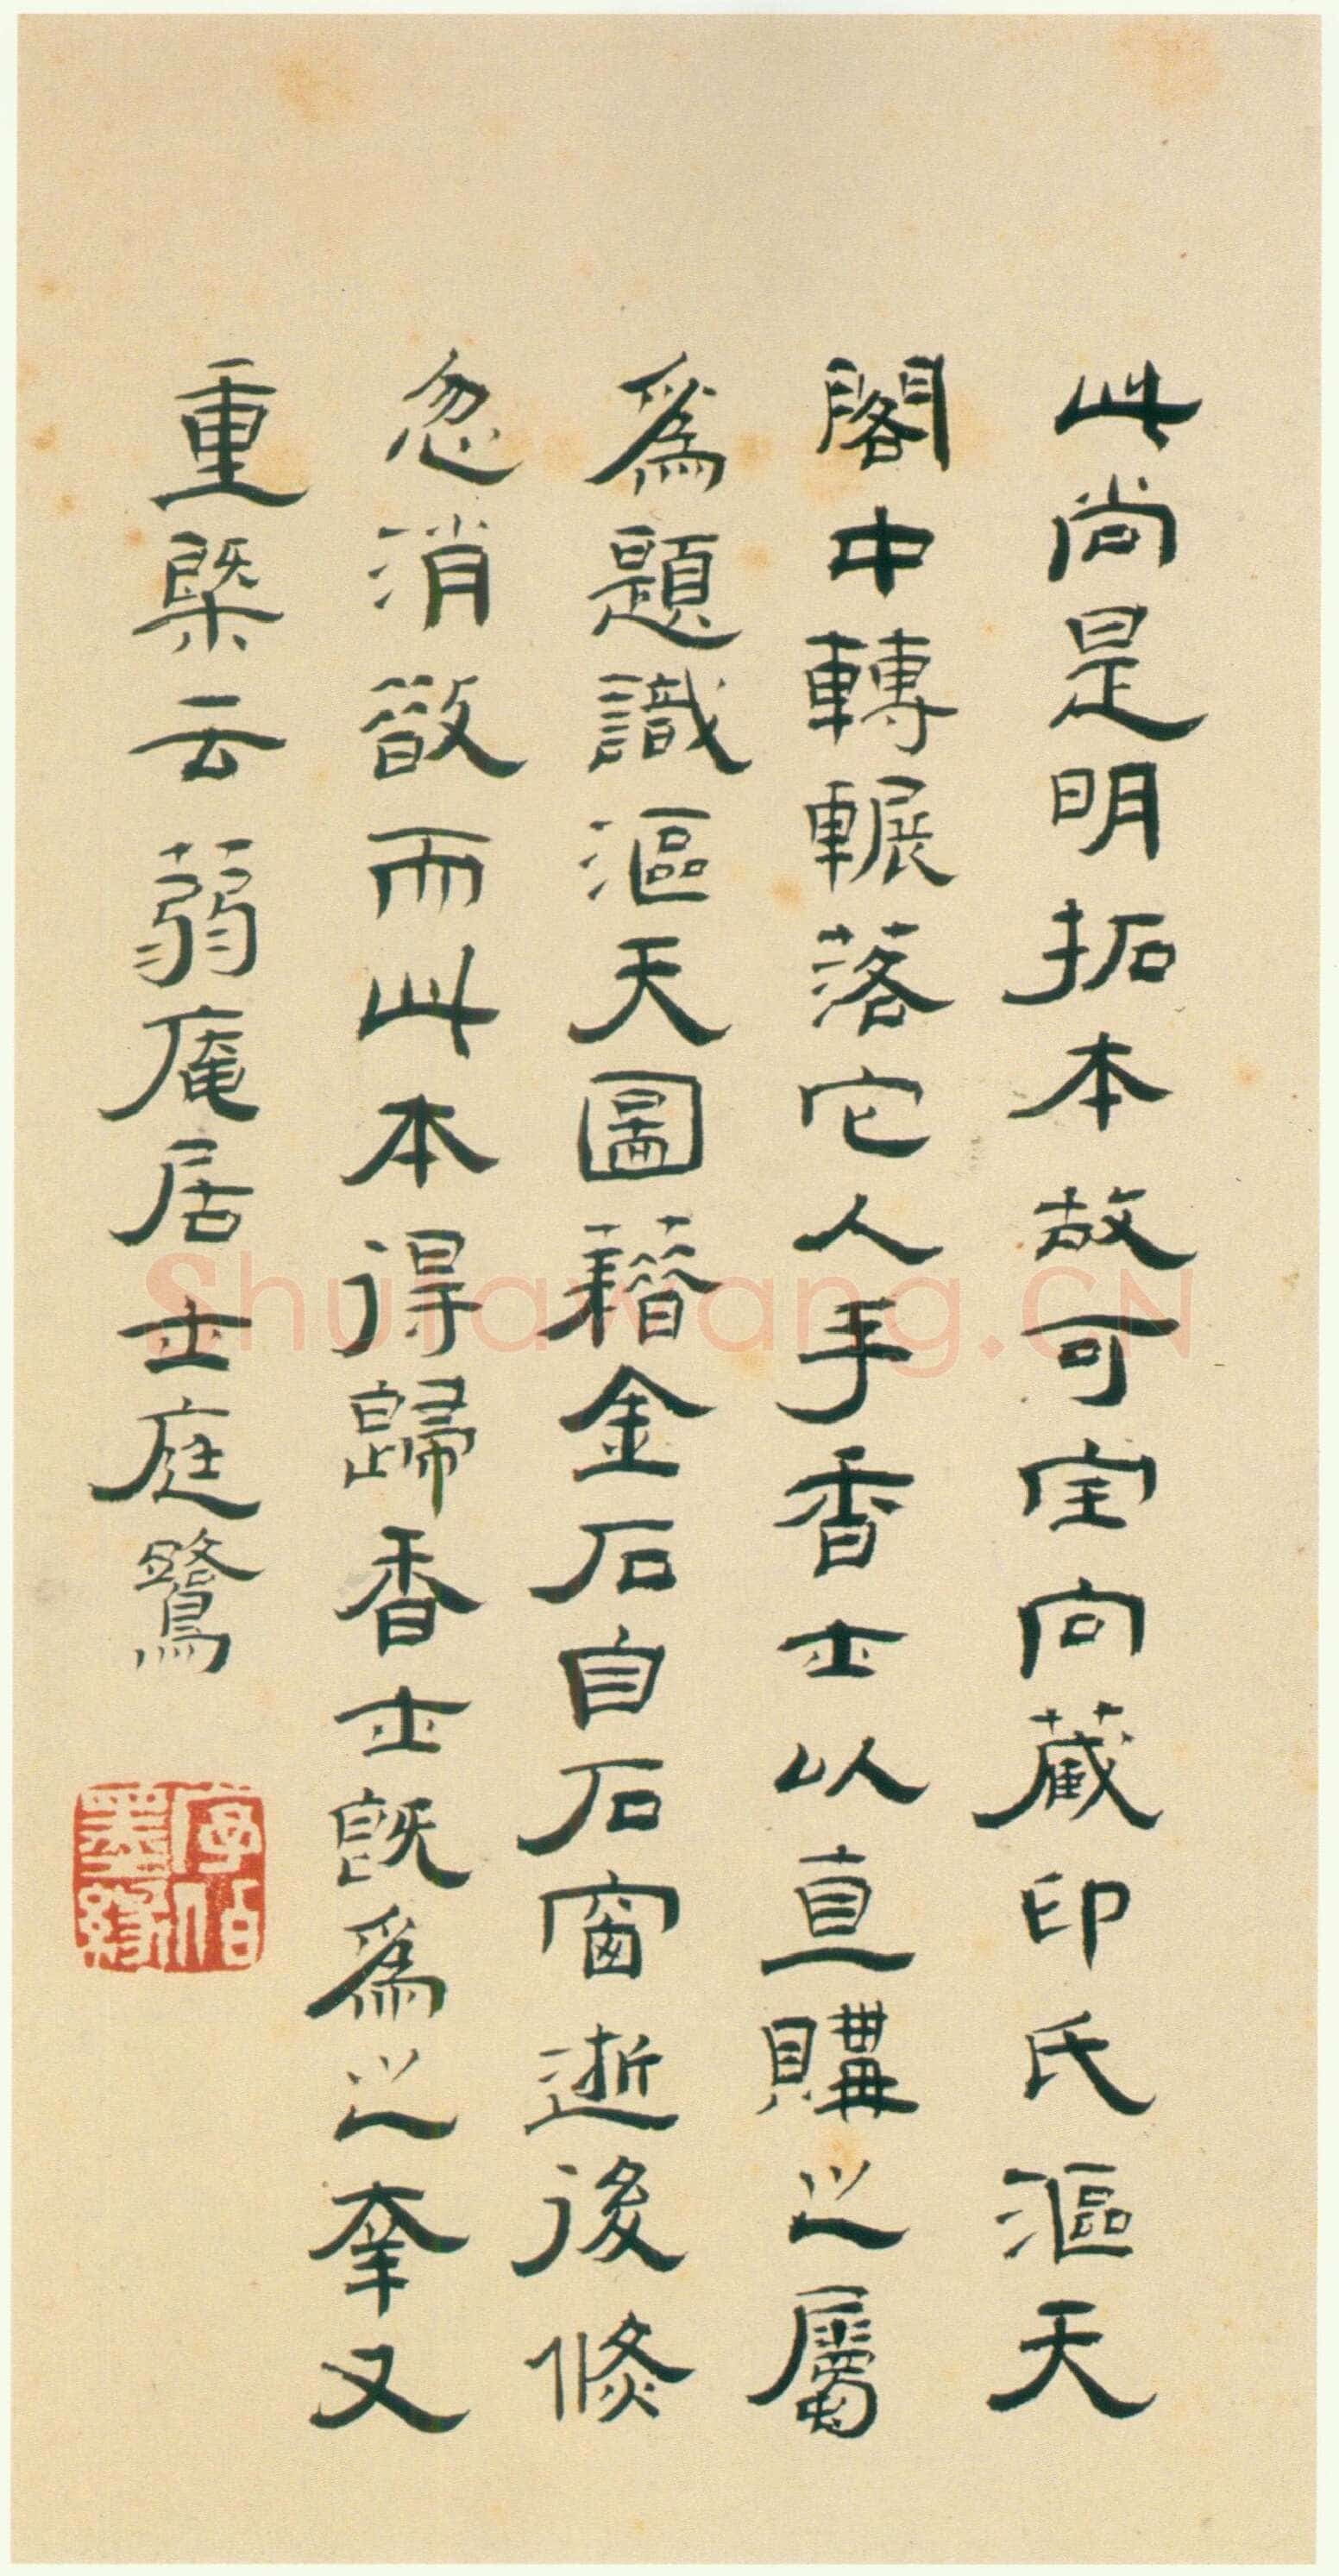 此尚是明拓本故可宝向藏印氏漚天
閣中轉輾落它人手香士以直購之屬
為題識漚天圖籍金石自石窗逝後倐
忽消散而此本得歸香士既為之摹又
重槧云 蒻庵居士庭鷺
Shufawang.CN